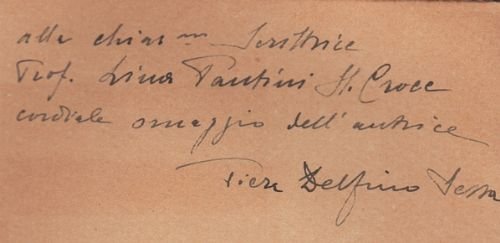 alla chiar.ma Scrittrice
Prof. Lina Pantini St. Croce
cordiale omaggio dell'autrice
Piera Delfino Sessa